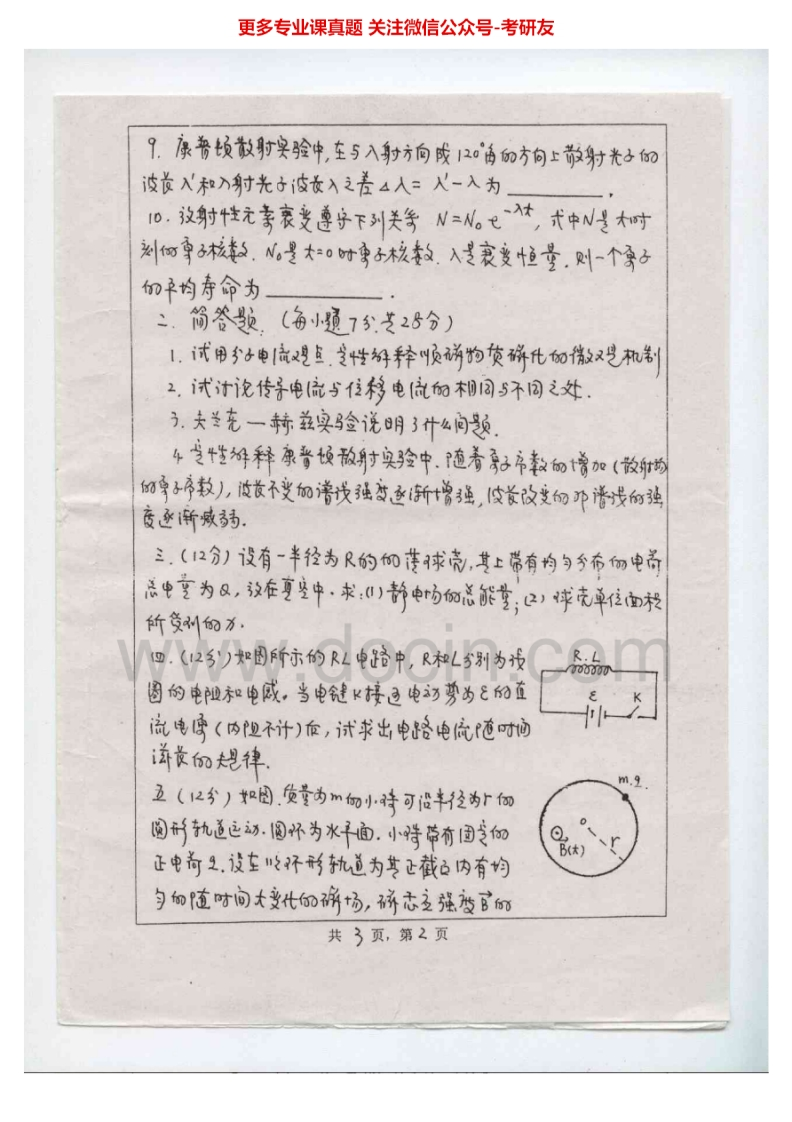 更多专业课真题 关注微信公众号-考研友
9. 康普顿散射实验中,在与入射方向成120°角的方向上散射光子的
波长λ'和入射光子波长λ之差△λ= λ'-λ为________.
10. 放射性元素衰变遵守下列关系 N=N₀e^{-λt}, 式中N是t时
刻的原子核数. N₀是t=0时原子核数. λ是衰变恒量. 则一个原子
的平均寿命为________.
二. 简答题. (每小题7分.共28分)
1. 试用分子电流观点.定性解释顺磁物质磁化的微观机制
2. 试讨论传导电流与位移电流的相同与不同之处.
3. 夫兰克—赫兹实验说明了什么问题.
4. 定性解释康普顿散射实验中.随着原子序数的增加(散射物
的原子序数), 波长不变的谱线强度逐渐增强, 波长改变的那谱线的强
度逐渐减弱.
三. (12分) 设有一半径为R的的薄球壳,其上带有均匀分布的电荷
总电量为Q, 放在真空中. 求:(1)静电场的总能量; (2) 球壳单位面积
所受到的力.
www.docin.com
四. (12分) 如图所示的RL电路中, R和L分别为线
圈的电阻和电感. 当电键K接通电动势为ε的直
流电源(内阻不计)后, 试求出电路电流随时间
滋长的规律.
R.L
ε
K
五 (12分) 如图.质量为m的小珠可沿半径为r的
圆形轨道运动.圆环为水平面. 小珠带有固定的
正电荷q. 设在以环形轨道为其正截面内有均
匀的随时间t变化的磁场, 磁感应强度B⃗的
m.q.
o
r
B(t)
共 3 页, 第 2 页